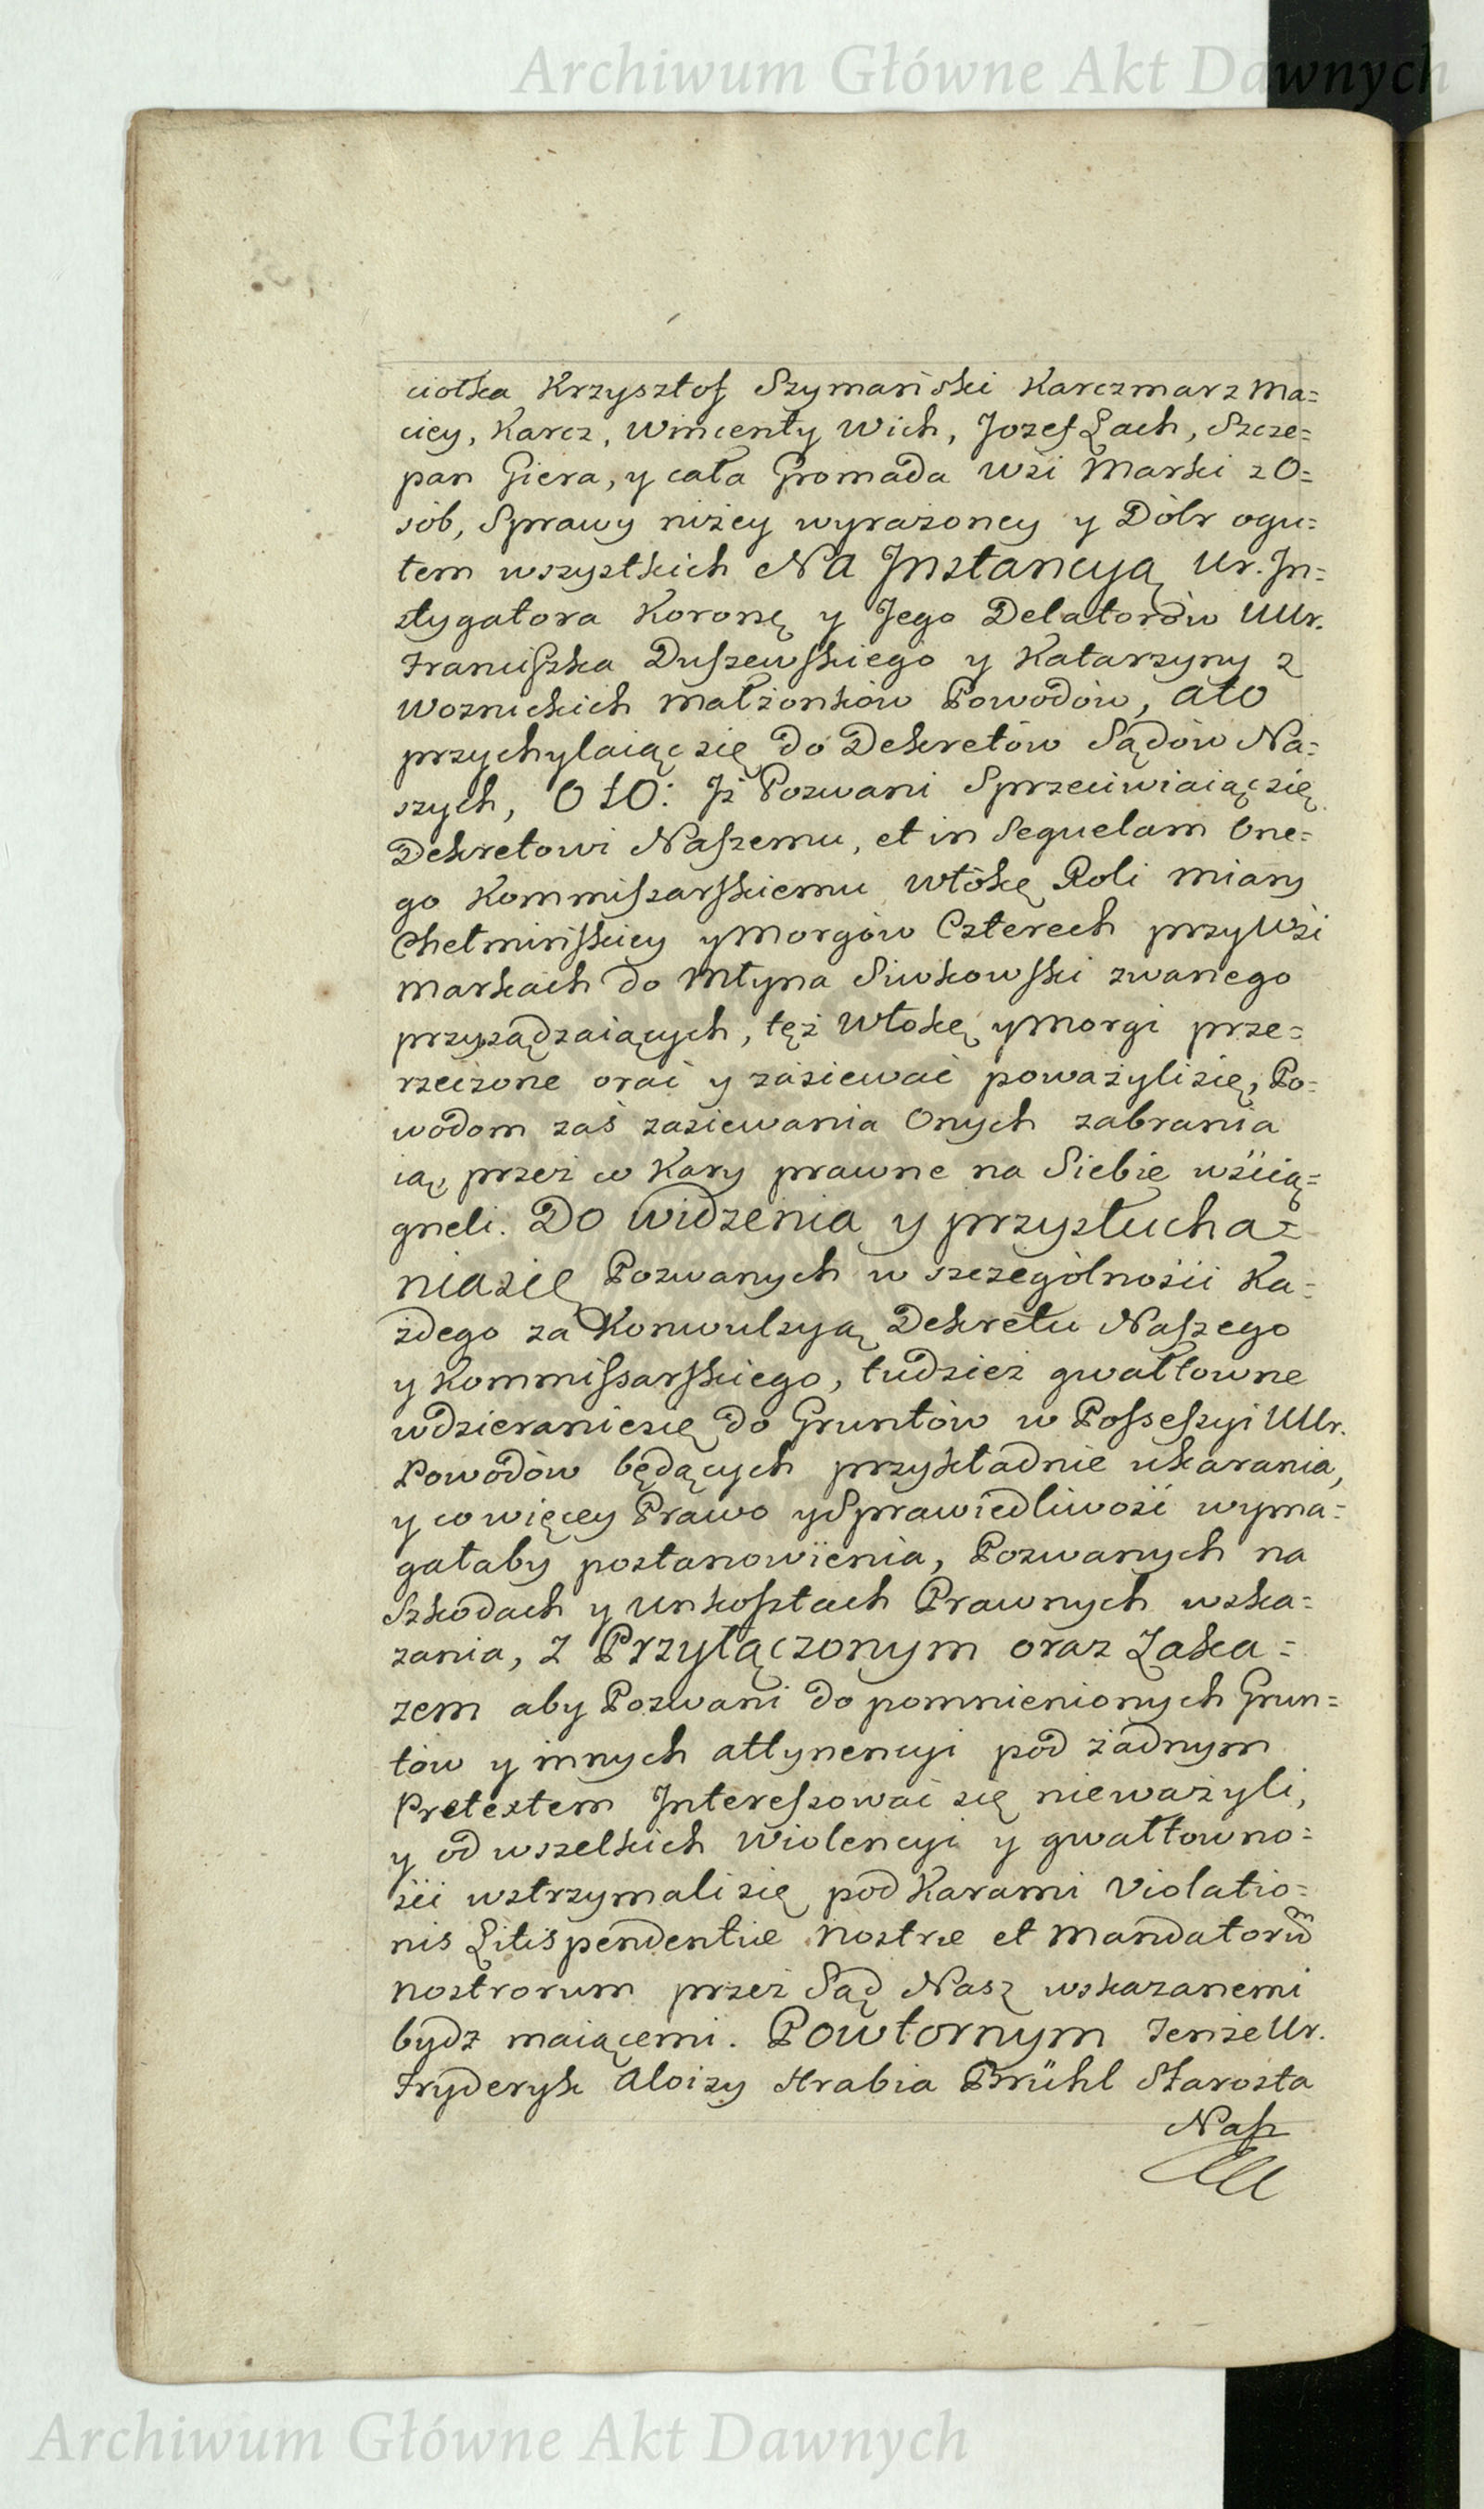 Archiwum Główne Akt Dawnych
ciołka Krzysztof Szymański Karczmarz Ma=
ciey, Karcz, Wincenty Wich, Jozef Lach, Szcze=
pan Giera, y cała Gromada Wsi Marki z O=
sób, Sprawy niżey wyrażoney y Dóbr ogu=
łem wszystkich Na Jnstancyą Ur. Jn=
stygatora Koronę y Jego Delatorów UUr.
Franciszka Duszewskiego y Katarzyny z
Woznickich Małżonków Powodów, ato
przychylaiąc się do Dekretów Sądów Na=
szych, Oto: Jż Pozwani Sprzeciwiaiąc się
Dekretowi Naszemu, et in Sequelam One=
go Kommissarskiemu Włókę Roli miary
Chełmińskiey y Morgów Czterech przy Wsi
Markach do Młyna Siwkowski zwanego
przysądzaiących, też Włokę y Morgi prze=
rzeczone orać y zasiewać poważyli się, Po=
wodom zaś zasiewania Onych zabrania
ią, przez co Kary prawne na Siebie wścią=
gneli. Do widzenia y przysłucha=
nia się Pozwanych w szczególności Ka=
żdego za Konwulsyą Dekretu Naszego
y Kommissarskiego, tudzież gwałtowne
wdzieranie się do Gruntów w Possessyi UUr.
Powodów będących przykładnie ukarania,
y co więcey Prawo y Sprawiedliwość wyma=
gałaby postanowienia, Pozwanych na
Szkodach y Unkosztach Prawnych wska=
zania, z Przyłączonym oraz Zaka=
zem aby Pozwani do pomnienionych Grun=
tów y innych attynencyi pod żadnym
Pretextem Jnteressować się nieważyli,
y od wszelkich Wiolencyi y gwałtowno=
ści wstrzymali się pod Karami Violatio=
nis Litispendentiæ Nostræ et Mandatorũ
Nostrorum przez Sąd Nasz wskazanemi
bydz maiącemi. Powtornym Tenże Ur.
Fryderyk Aloizy Hrabia Brühl Starosta
Nasz
Archiwum Główne Akt Dawnych